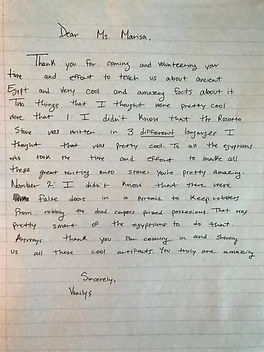 Dear Ms. Marisa,
Thank you for coming and volunteering your
time and effort to teach us about ancient
Egypt and very cool and amazing facts about it
Two things that I thought were pretty cool
were that 1 I didn't know that the Rosetta
Stone was written in 3 different languages I
thought that was pretty cool. To all the egyptians
who took the time and effort to make all
these great writing onto stone. You're pretty amazing.
Number 2 I didn't know that there were
false doors in a pyramid to keep robbers
from robbing the dead corpses prized possessions. That was
pretty smart of the egyptians to do that.
Anyways thank you for coming in and showing
us all those cool artifacts. You truly are amazing
Sincerely,